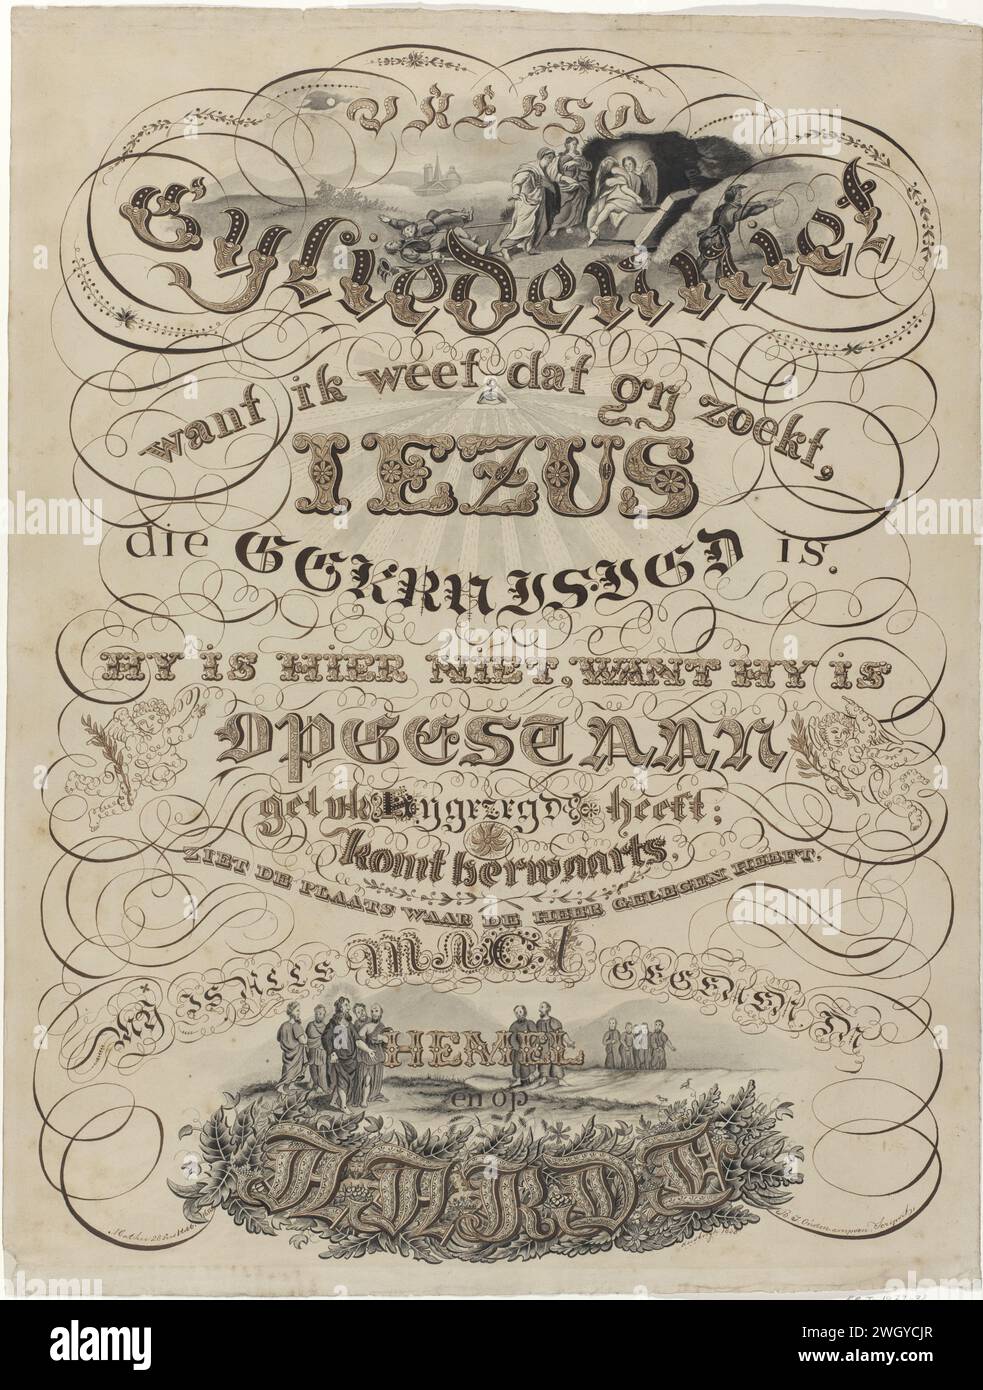 VREEST
Gylieden niet
want ik weet dat gij zoekt,
IEZUS
die GEKRUISIGD is.
HY IS HIER NIET, WANT HY IS
OPGESTAAN
gelyk hy gezegd heeft;
komt herwaarts,
ZIET DE PLAATS WAAR DE HEER GELEGEN HEEFT.
MY IS ALLE MACT GEGEVEN IN
HEMEL
en op
AARDE
alamy
Image ID: 2WGYCJR
www.alamy.com